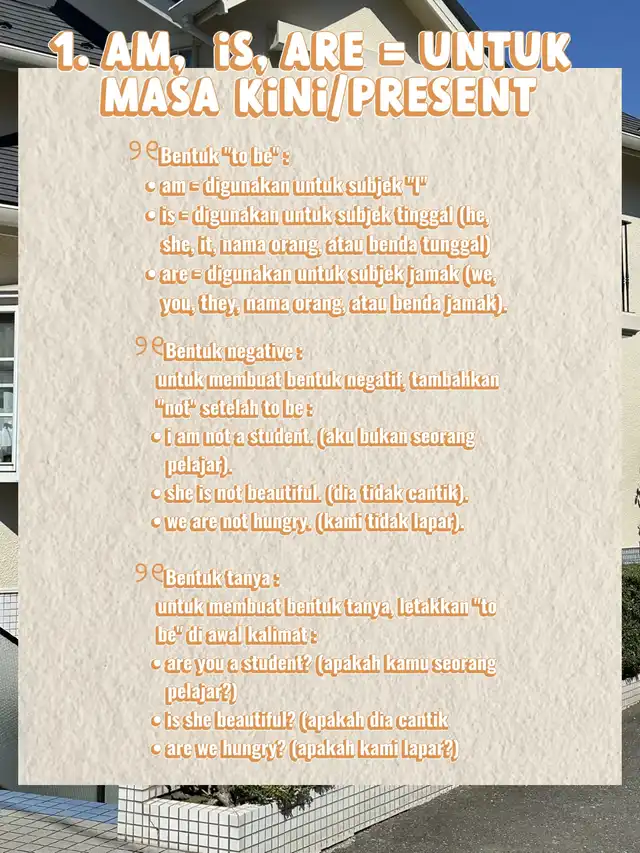 1. AM, iS, ARE = UNTUK
MASA KiNi/PRESENT
Bentuk "to be" :
• am = digunakan untuk subjek "I"
• is = digunakan untuk subjek tinggal (he,
she, it, nama orang, atau benda tunggal)
• are = digunakan untuk subjek jamak (we,
you, they, nama orang, atau benda jamak).
Bentuk negative :
untuk membuat bentuk negatif, tambahkan
"not" setelah to be :
• i am not a student. (aku bukan seorang
pelajar).
• she is not beautiful. (dia tidak cantik).
• we are not hungry. (kami tidak lapar).
Bentuk tanya :
untuk membuat bentuk tanya, letakkan "to
be" di awal kalimat :
• are you a student? (apakah kamu seorang
pelajar?)
• is she beautiful? (apakah dia cantik
• are we hungry? (apakah kami lapar?)